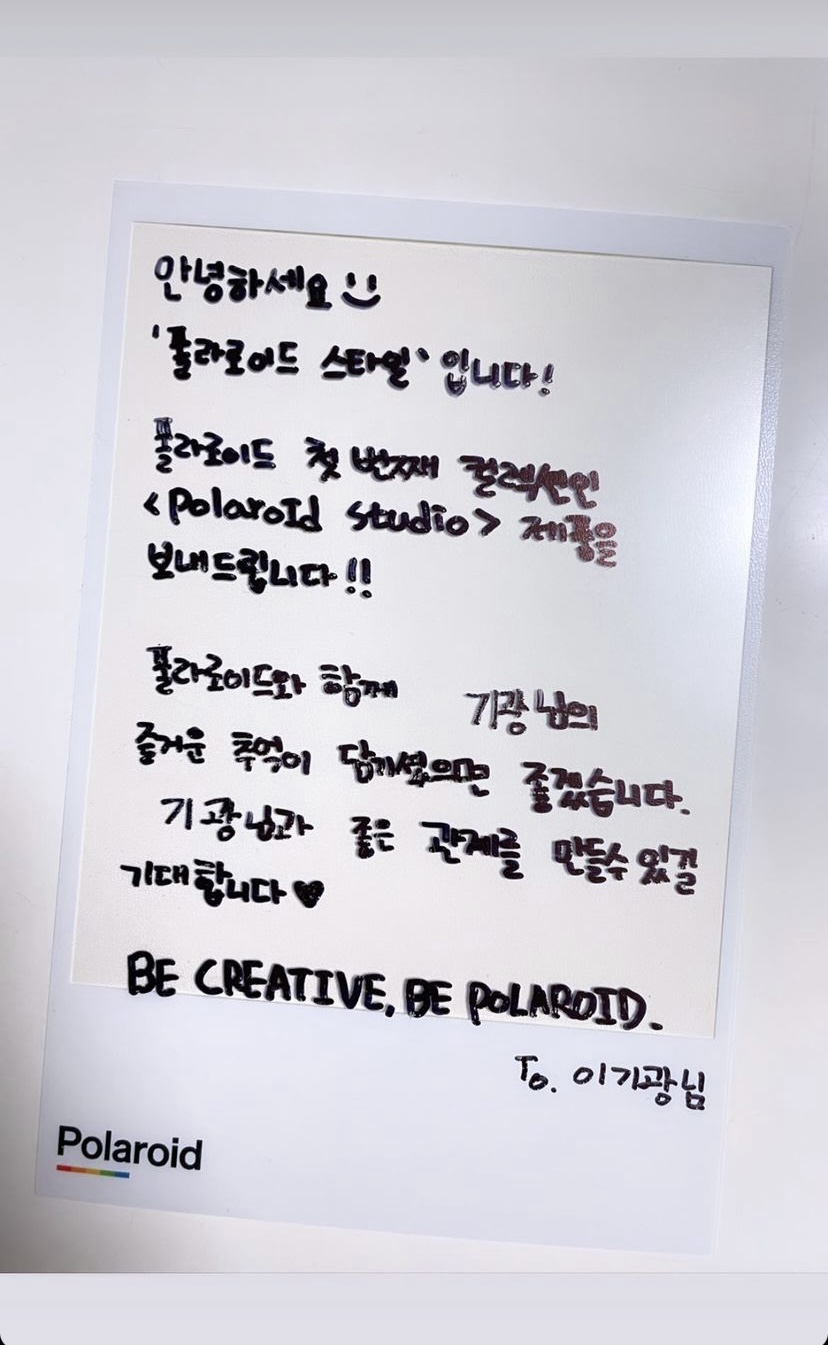 안녕하세요
'폴라로이드 스타일' 입니다!
폴라로이드 첫 번째 컬렉션인
<Polaroid studio> 제품을
보내드립니다!!
폴라로이드와 함께 기광님의
즐거운 추억이 담기셨으면 좋겠습니다.
기광님과 좋은 관계를 만들수 있길
기대합니다♥
BE CREATIVE, BE POLAROID.
To. 이기광님
Polaroid